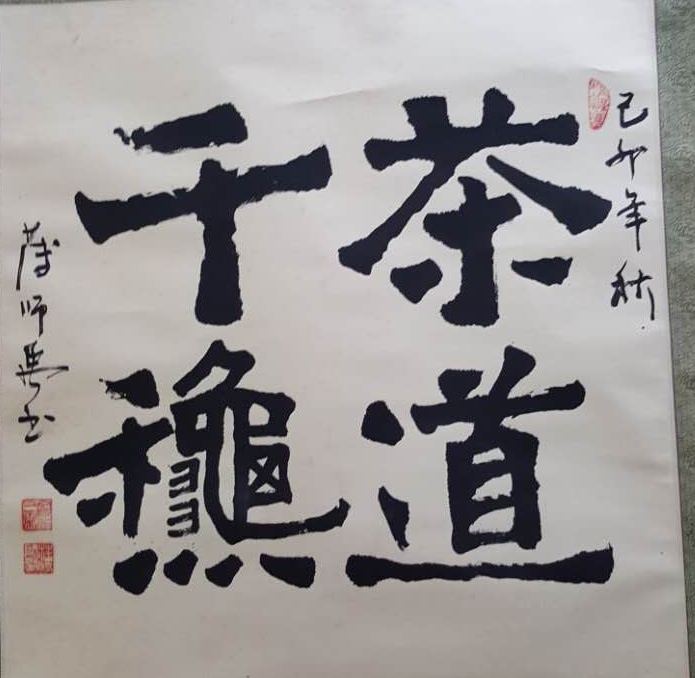 己卯年秋
茶道
千龝
师书